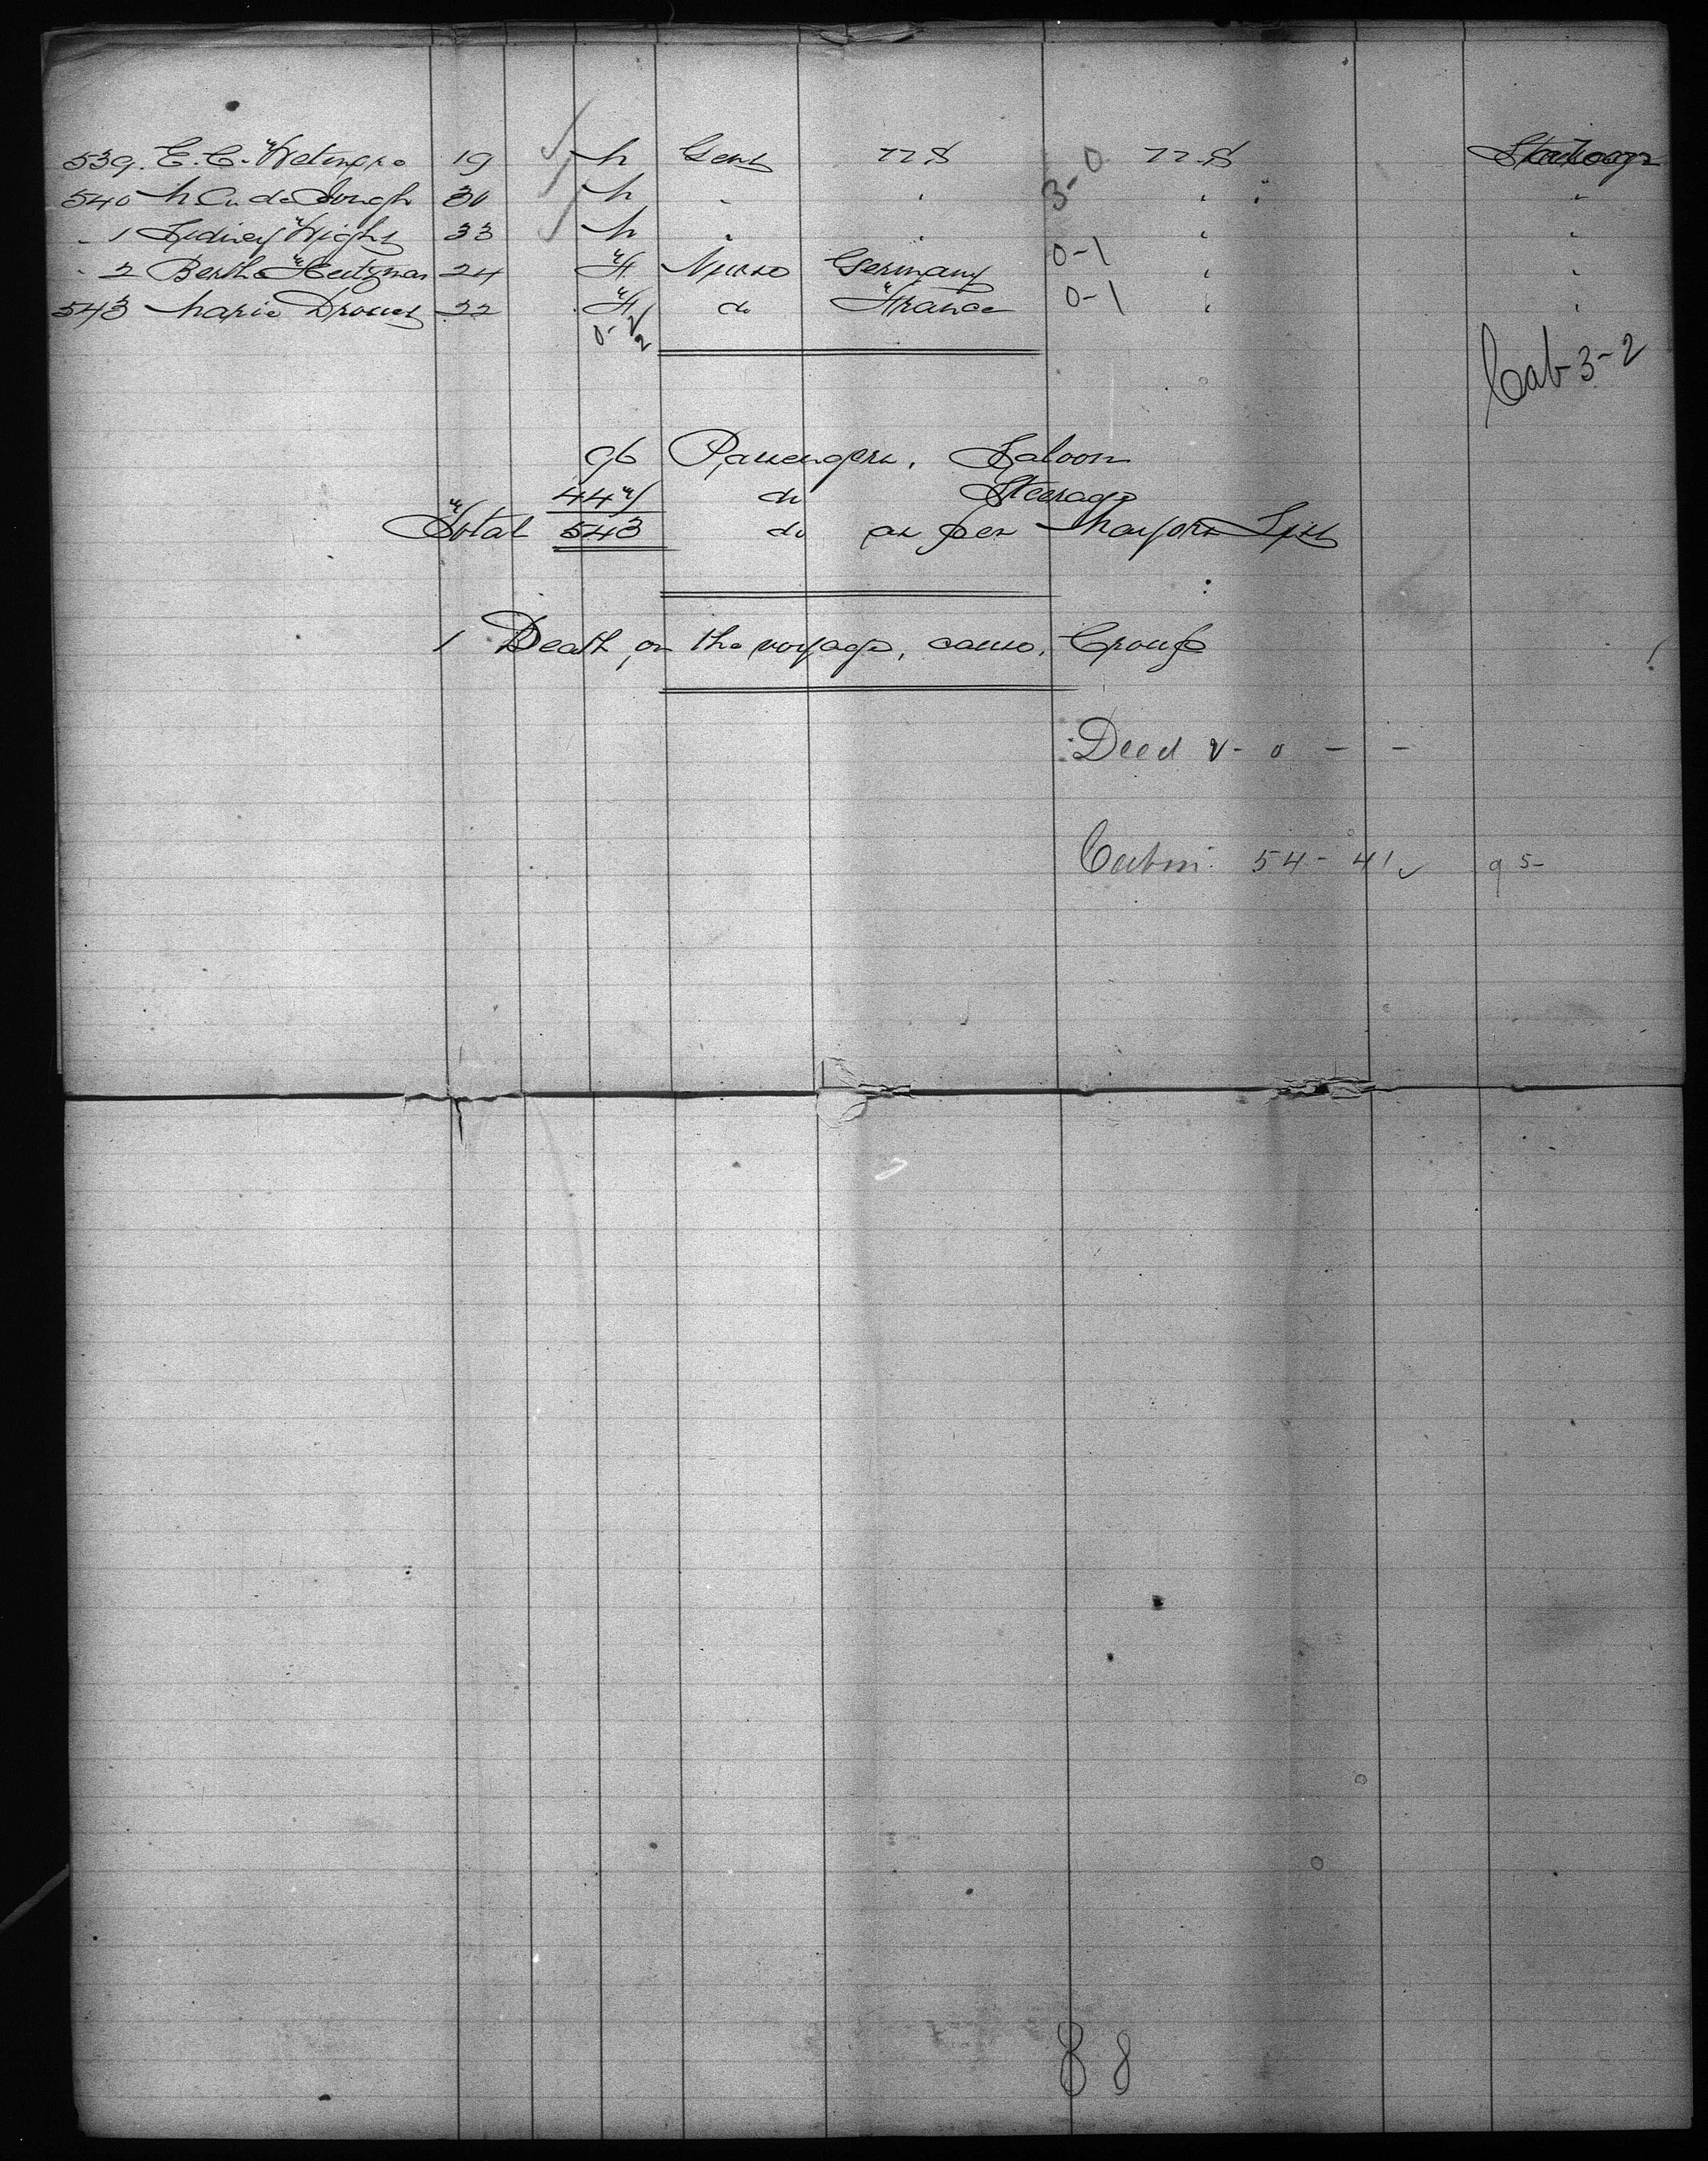 539. E. C. 19 M Gent U.S. 3-0 U.S.
540 M. C. de Jongh 30 M " " " "
" 1 Sidney Wight 33 M " " " "
" 2 Bertha Heitzman 24 F Nurse Germany 0-1 " "
543 Marie Drouet 22 F do France 0-1 " "
0-2
Cab 3-2
96 Passengers, Saloon
447 do Steerage
Total 543 do as per Mayors List
1 Death, on the voyage, cause, Croup
Died 2 - 0 - -
Cabin 54 - 41 95
88